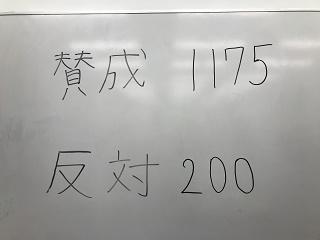 賛成 1175
反対 200